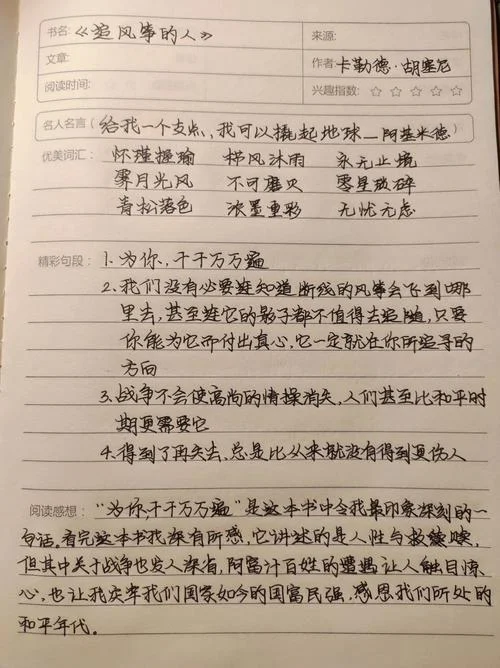 书名：《追风筝的人》 来源：
文章： 作者：卡勒德·胡塞尼
阅读时间： 兴趣指数：☆ ☆ ☆ ☆ ☆
名人名言（给我一个支点，我可以撬起地球—阿基米德）
优美词汇： 怀瑾握瑜 栉风沐雨 永无止境
霁月光风 不可磨灭 零星破碎
青松落色 浓墨重彩 无忧无虑
精彩句段： 1. 为你，千千万万遍
2. 我们没有必要难知道断线的风筝会飞到哪
里去，甚至连它的影子都不值得去追随，只要
你能为它而付出真心，它一定就在你所追寻的
方向
3. 战争不会使高尚的情操消失，人们甚至比和平时
期更需要它
4. 得到了再失去，总是比从来就没有得到更伤人
阅读感想： “为你，千千万万遍”是这本书中令我最印象深刻的一
句话。看完这本书我深有所感，它讲述的是人性与救赎，
但其中关于战争也发人深省，阿富汗百姓的遭遇让人触目惊
心，也让我庆幸我们国家如今的国富民强，感恩我们所处的
和平年代。